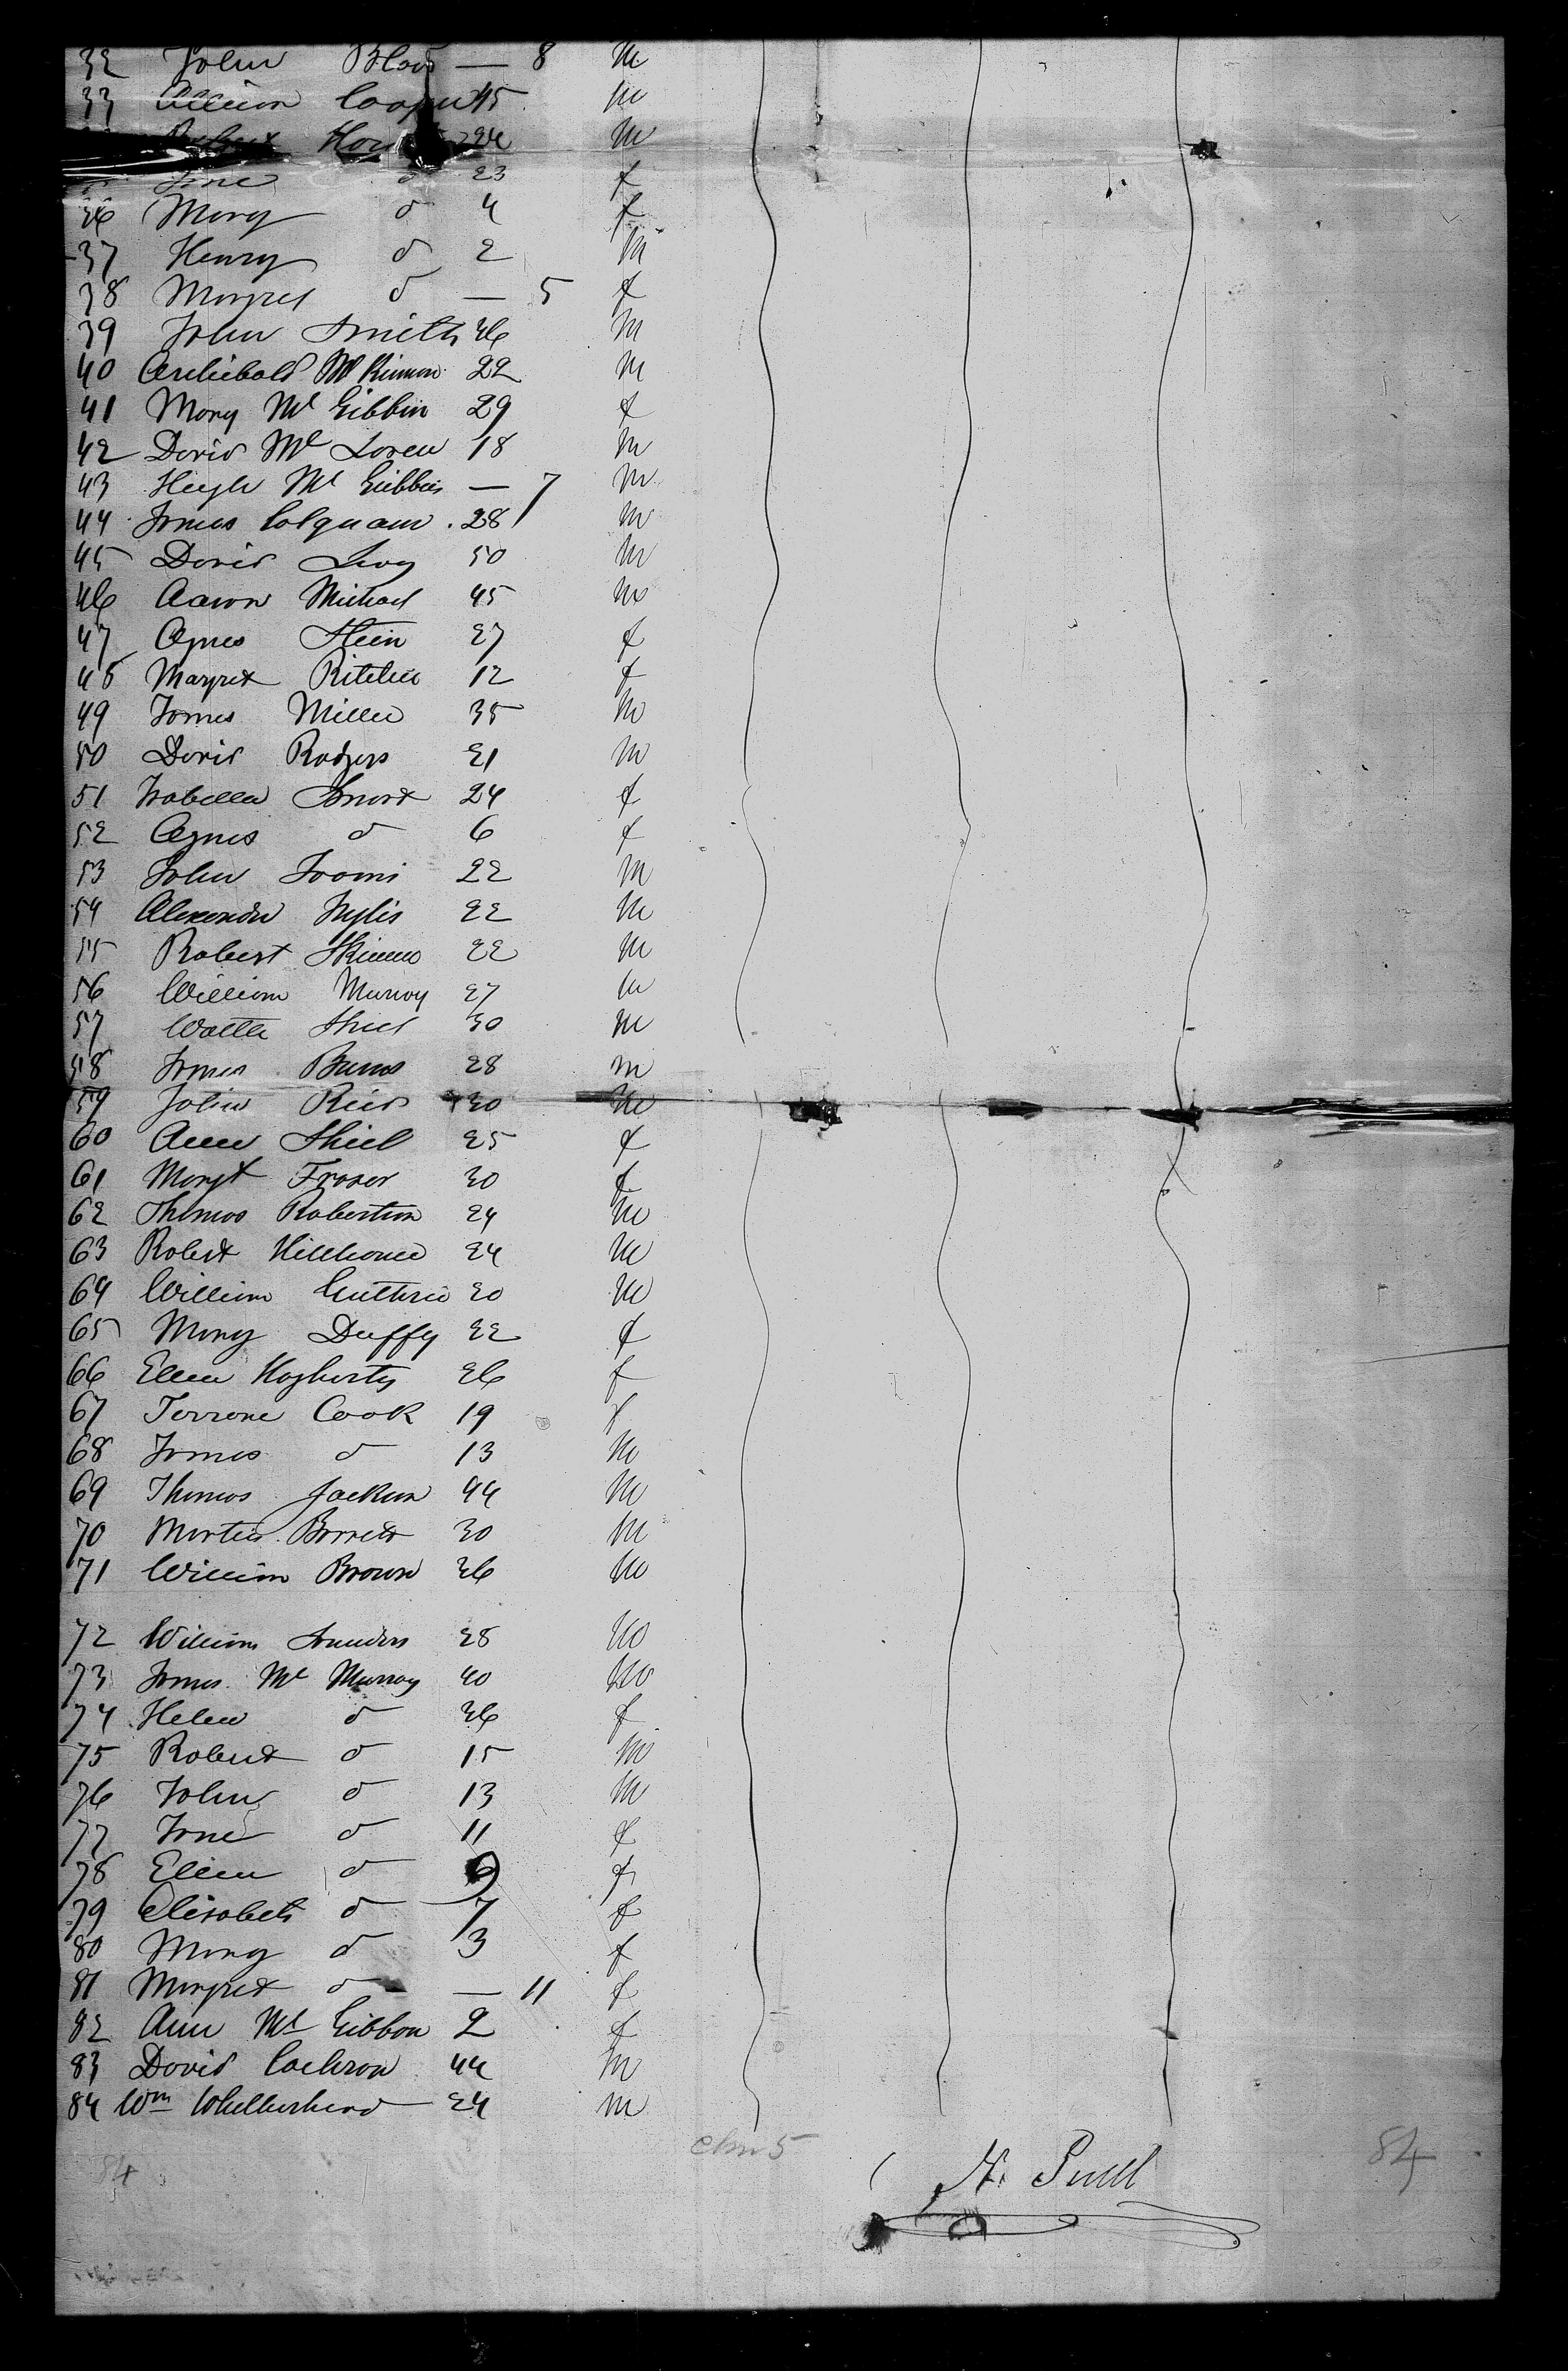 32 John Blair — 8 m
33 William Cooper 45 m
Robert 24 m
Jane d 23 f
36 Mary d 4 f
37 Henry d 2 m
38 Margret d — 5 f
39 John Smith 36 m
40 Archibald Mc Kinnon 22 m
41 Mary Mc Gibbin 29 f
42 David Mc Laren 18 m
43 Hugh Mc Gibbin — 7 m
44 James Colquam 28 m
45 David Levy 50 m
46 Aaron Michael 45 m
47 Agnes Stein 27 f
48 Margret Ritchie 12 f
49 James Miller 35 m
50 David Rodgers 21 m
51 Isabella Smart 24 f
52 Agnes d 6 f
53 John 22 m
54 Alexander 22 m
55 Robert Skinner 22 m
56 William Murray 27 m
57 Walter Shiel 30 m
58 James Burns 28 m
59 John Reid 30 m
60 Ann Shiel 25 f
61 Margt Fraser 30 f
62 Thomas Robertson 24 m
63 Robert Hillhouse 24 m
64 William Guthrie 20 m
65 Mary Duffy 22 f
66 Ellen Hagherty 26 f
67 Cook 19 f
68 James d 13 m
69 Thomas Jackson 44 m
70 Martin Barrett 30 m
71 William Brown 36 m
72 William Saunders 28 m
73 James Mc Murray 40 m
74 Helen d 36 f
75 Robert d 15 m
76 John d 13 m
77 Jane d 11 f
78 Ellen d 9 f
79 Elisabeth d 7 f
80 Mary d 3 f
81 Margret d — 11 f
82 Ann Mc Gibbon 2 f
83 David Cochran 44 m
84 Wm Whellerhead 24 m
84
84